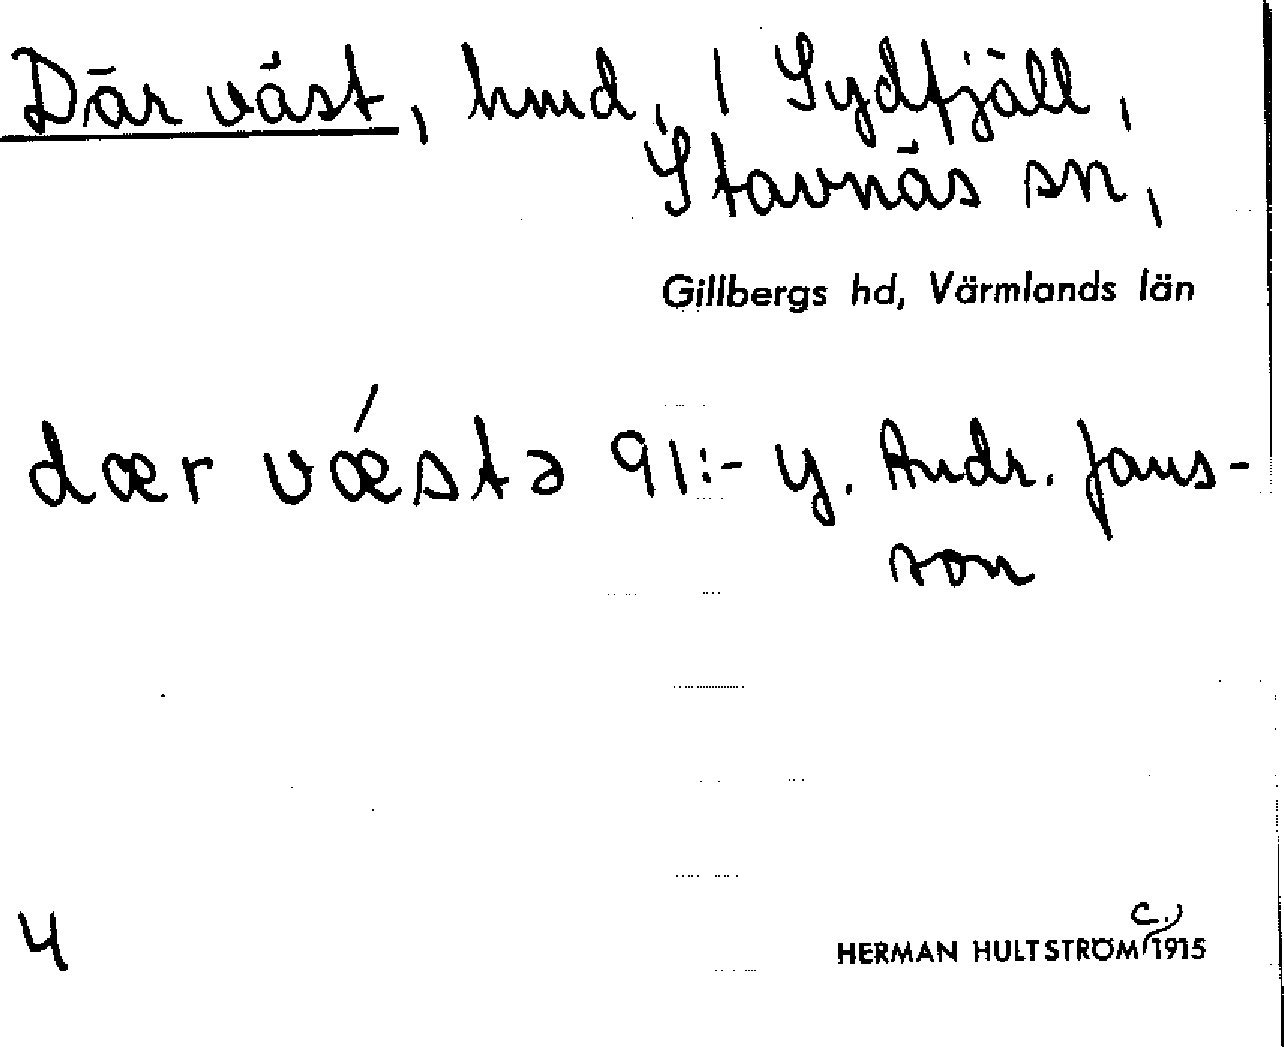 Där väst, hmd, 1 Sydfjäll,
Stavnäs sn,
Gillbergs hd, Värmlands län
dær vǽstə 91:- y. Andr. Jans-
son
4
c.
HERMAN HULTSTRÖM 1915